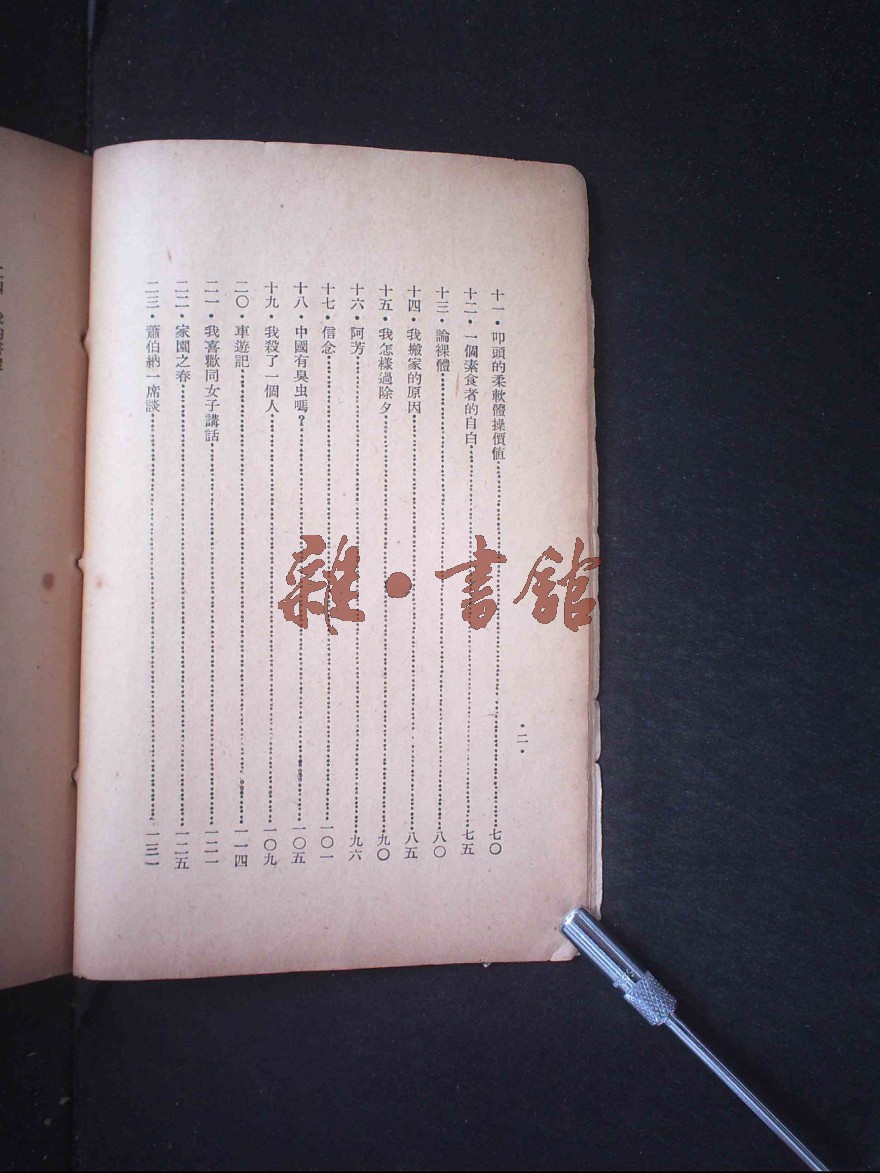 •二•
十一•叩頭的柔軟體操價值……七〇
十二•一個素食者的自白……七五
十三•論裸體……八〇
十四•我搬家的原因……八五
十五•我怎樣過除夕……九〇
十六•阿芳……九六
十七•信念……一〇一
十八•中國有臭虫嗎?……一〇五
十九•我殺了一個人……一〇九
二〇•車遊記……一一四
二一•我喜歡同女子講話……一二一
二二•家園之春……一二五
二三•蕭伯納一席談……一三一
雜•書館